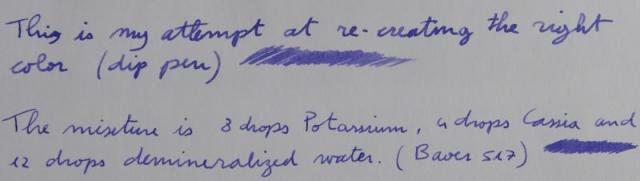 This is my attempt at re-creating the right
color (dip pen)
The mixture is 3 drops Potassium, 4 drops Cassia and
12 drops demineralized water. (Baver 517)